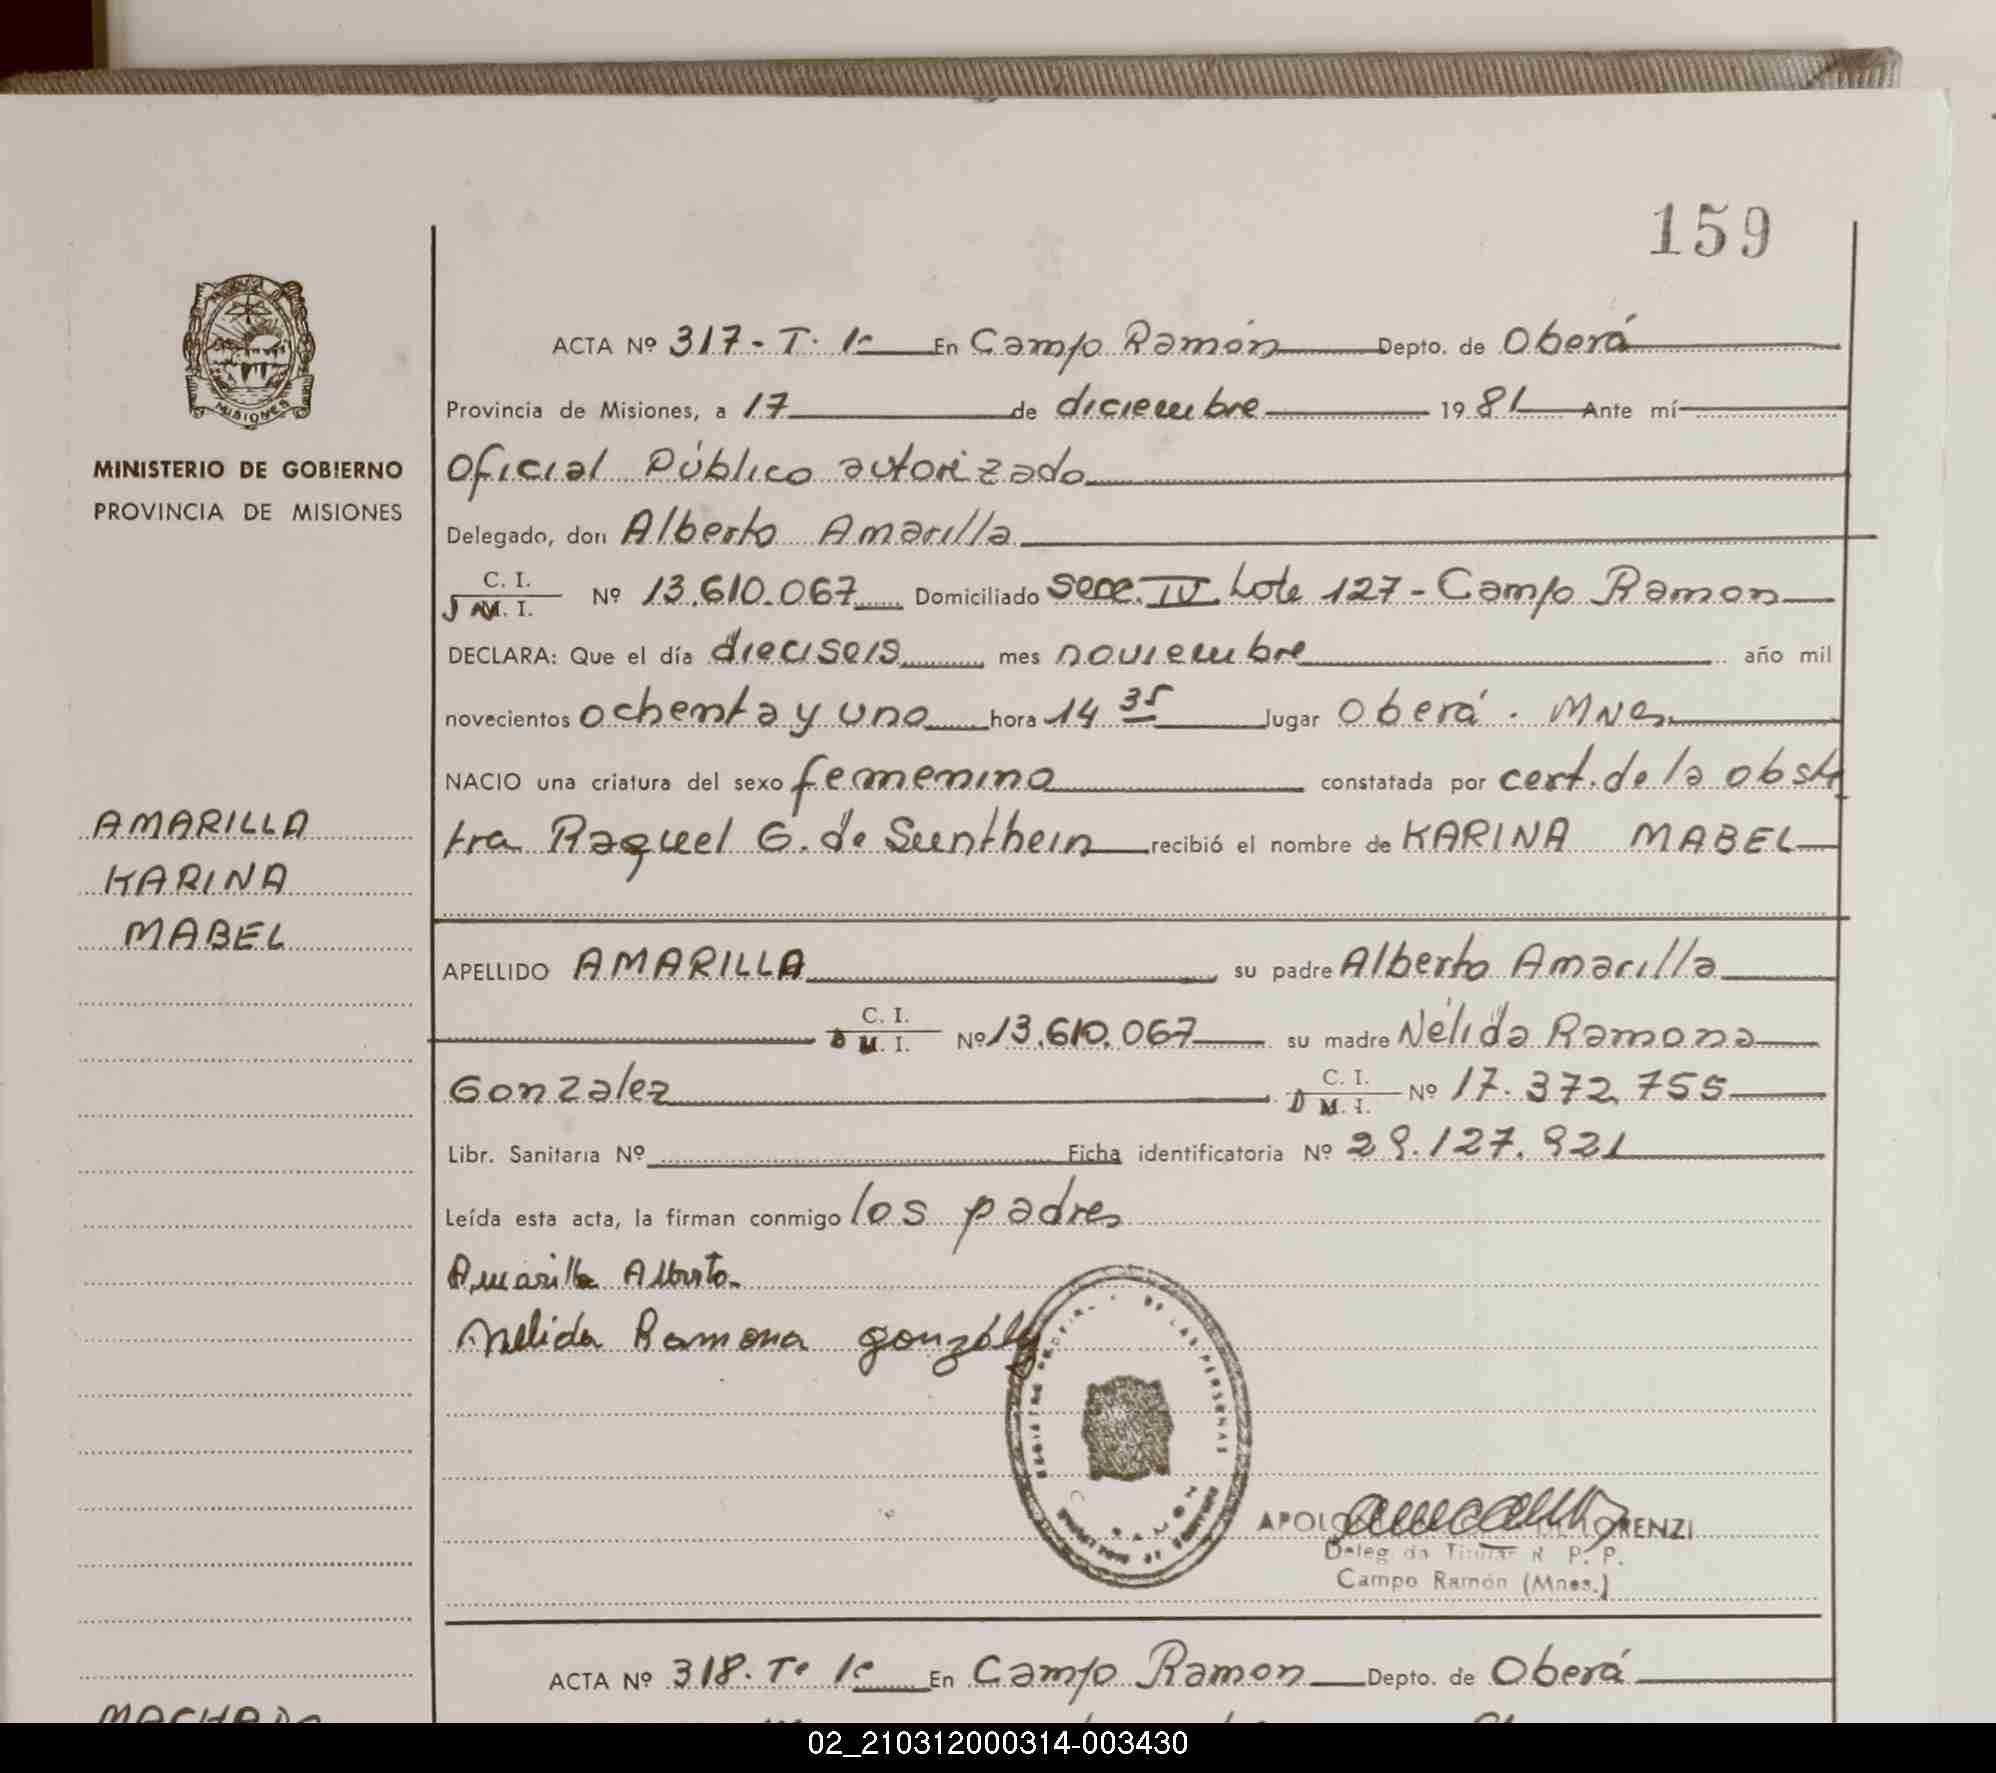 159
ACTA Nº 317 - T. 1º En Campo Ramón Depto. de Oberá
Provincia de Misiones, a 17 de diciembre 19 81 Ante mí
Oficial Público autorizado
MINISTERIO DE GOBIERNO
PROVINCIA DE MISIONES
Delegado, don Alberto Amarilla
C. I.
M. I. Nº 13.610.067 Domiciliado Secc. IV Lote 127 - Campo Ramon
DECLARA: Que el día dieciseis mes noviembre año mil
novecientos ochenta y uno hora 14 35 lugar Oberá . Mnes
NACIO una criatura del sexo femenino constatada por cert. de la obste
tra Raquel G. de Sunthein recibió el nombre de KARINA MABEL
AMARILLA
KARINA
MABEL
APELLIDO AMARILLA su padre Alberto Amarilla
C. I.
D M. I. Nº 13.610.067 su madre Nélida Ramona
Gonzalez C. I.
D M. I. Nº 17.372.755
Libr. Sanitaria Nº Ficha identificatoria Nº 29.127.921
Leída esta acta, la firman conmigo los padres
Amarilla Alberto
Nelida Ramona gonzález
DE LAS PERSONAS
APOLO LORENZI
Titular R. P. P.
Campo Ramón (Mnes.)
ACTA Nº 318. Tº 1º En Campo Ramon Depto. de Oberá
MACHADO
02_210312000314-003430